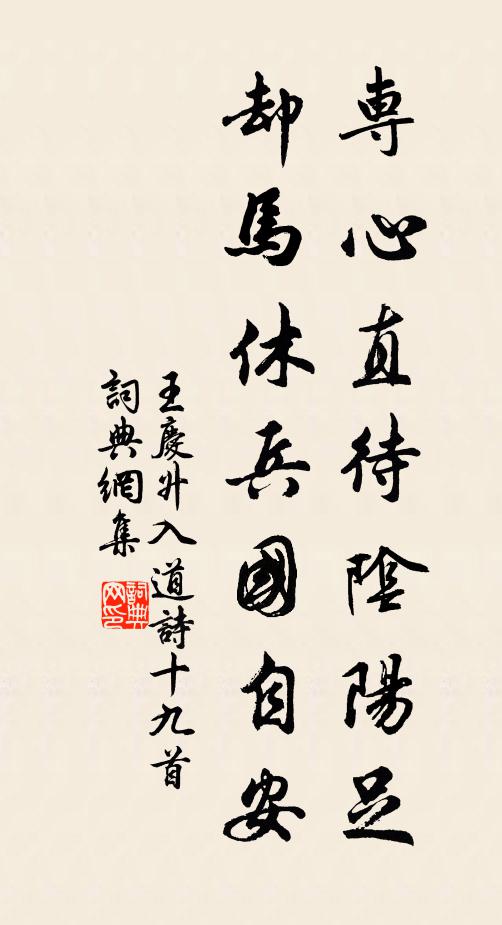 専心直待陰陽足
却馬休兵國自安
王慶升入道詩十九首
詞典網集
詞典网印